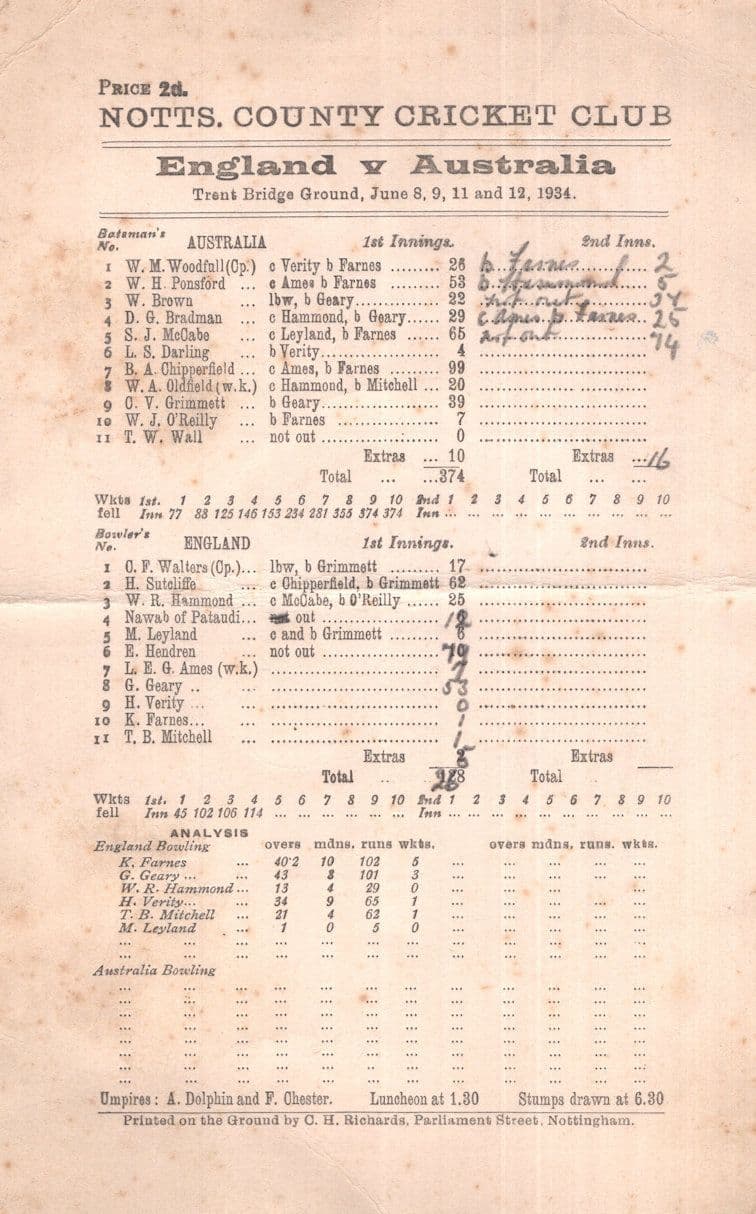 PRICE 2d.
NOTTS. COUNTY CRICKET CLUB
England v Australia
Trent Bridge Ground, June 8, 9, 11 and 12, 1934.
Batsman's No. AUSTRALIA 1st Innings. 2nd Inns.
1 W. M. Woodfull (Cp.) c Verity b Farnes ......... 26 b. Farnes 2
2 W. H. Ponsford ... c Ames b Farnes ......... 53 b Hammond 5
3 W. Brown ... lbw, b Geary ......... 22 not out
4 D. G. Bradman ... c Hammond, b Geary ...... 29 c Ames b Farnes 25
5 S. J. McCabe ... c Leyland, b Farnes ...... 65 not out 74
6 L. S. Darling ... b Verity ......... 4
7 B. A. Chipperfield ... c Ames, b Farnes ......... 99
8 W. A. Oldfield (w.k.) c Hammond, b Mitchell ... 20
9 C. V. Grimmett ... b Geary ......... 39
10 W. J. O'Reilly ... b Farnes ......... 7
11 T. W. Wall ... not out ......... 0
Extras ... 10 Extras ... 16
Total ... ...374 Total ... ...
Wkts 1st. 1 2 3 4 5 6 7 8 9 10 2nd 1 2 3 4 5 6 7 8 9 10
fell Inn 77 88 125 146 153 234 281 355 374 374 Inn ... ... ... ... ... ... ... ... ... ...
Bowler's No. ENGLAND 1st Innings. 2nd Inns.
1 C. F. Walters (Cp.)... lbw, b Grimmett ......... 17
2 H. Sutcliffe ... c Chipperfield, b Grimmett 62
3 W. R. Hammond ... c McCabe, b O'Reilly ...... 25
4 Nawab of Pataudi... out ......... 12
5 M. Leyland ... c and b Grimmett ......... 6
6 E. Hendren ... not out ......... 79
7 L. E. G. Ames (w.k.) ......... 7
8 G. Geary .. ... ......... 53
9 H. Verity ... ... ......... 0
10 K. Farnes... ... ......... 1
11 T. B. Mitchell ... ......... 1
Extras 5 Extras
Total .. 268 Total ..
Wkts 1st. 1 2 3 4 5 6 7 8 9 10 2nd 1 2 3 4 5 6 7 8 9 10
fell Inn 45 102 106 114 ... ... ... ... ... ... Inn ... ... ... ... ... ... ... ... ... ...
ANALYSIS
England Bowling overs mdns, runs wkts, overs mdns, runs. wkts.
K. Farnes ... 40·2 10 102 5
G. Geary ... ... 43 8 101 3
W. R. Hammond ... 13 4 29 0
H. Verity... ... 34 9 65 1
T. B. Mitchell ... 21 4 62 1
M. Leyland ... 1 0 5 0
Australia Bowling
Umpires : A. Dolphin and F. Chester. Luncheon at 1.30 Stumps drawn at 6.30
Printed on the Ground by C. H. Richards, Parliament Street, Nottingham.